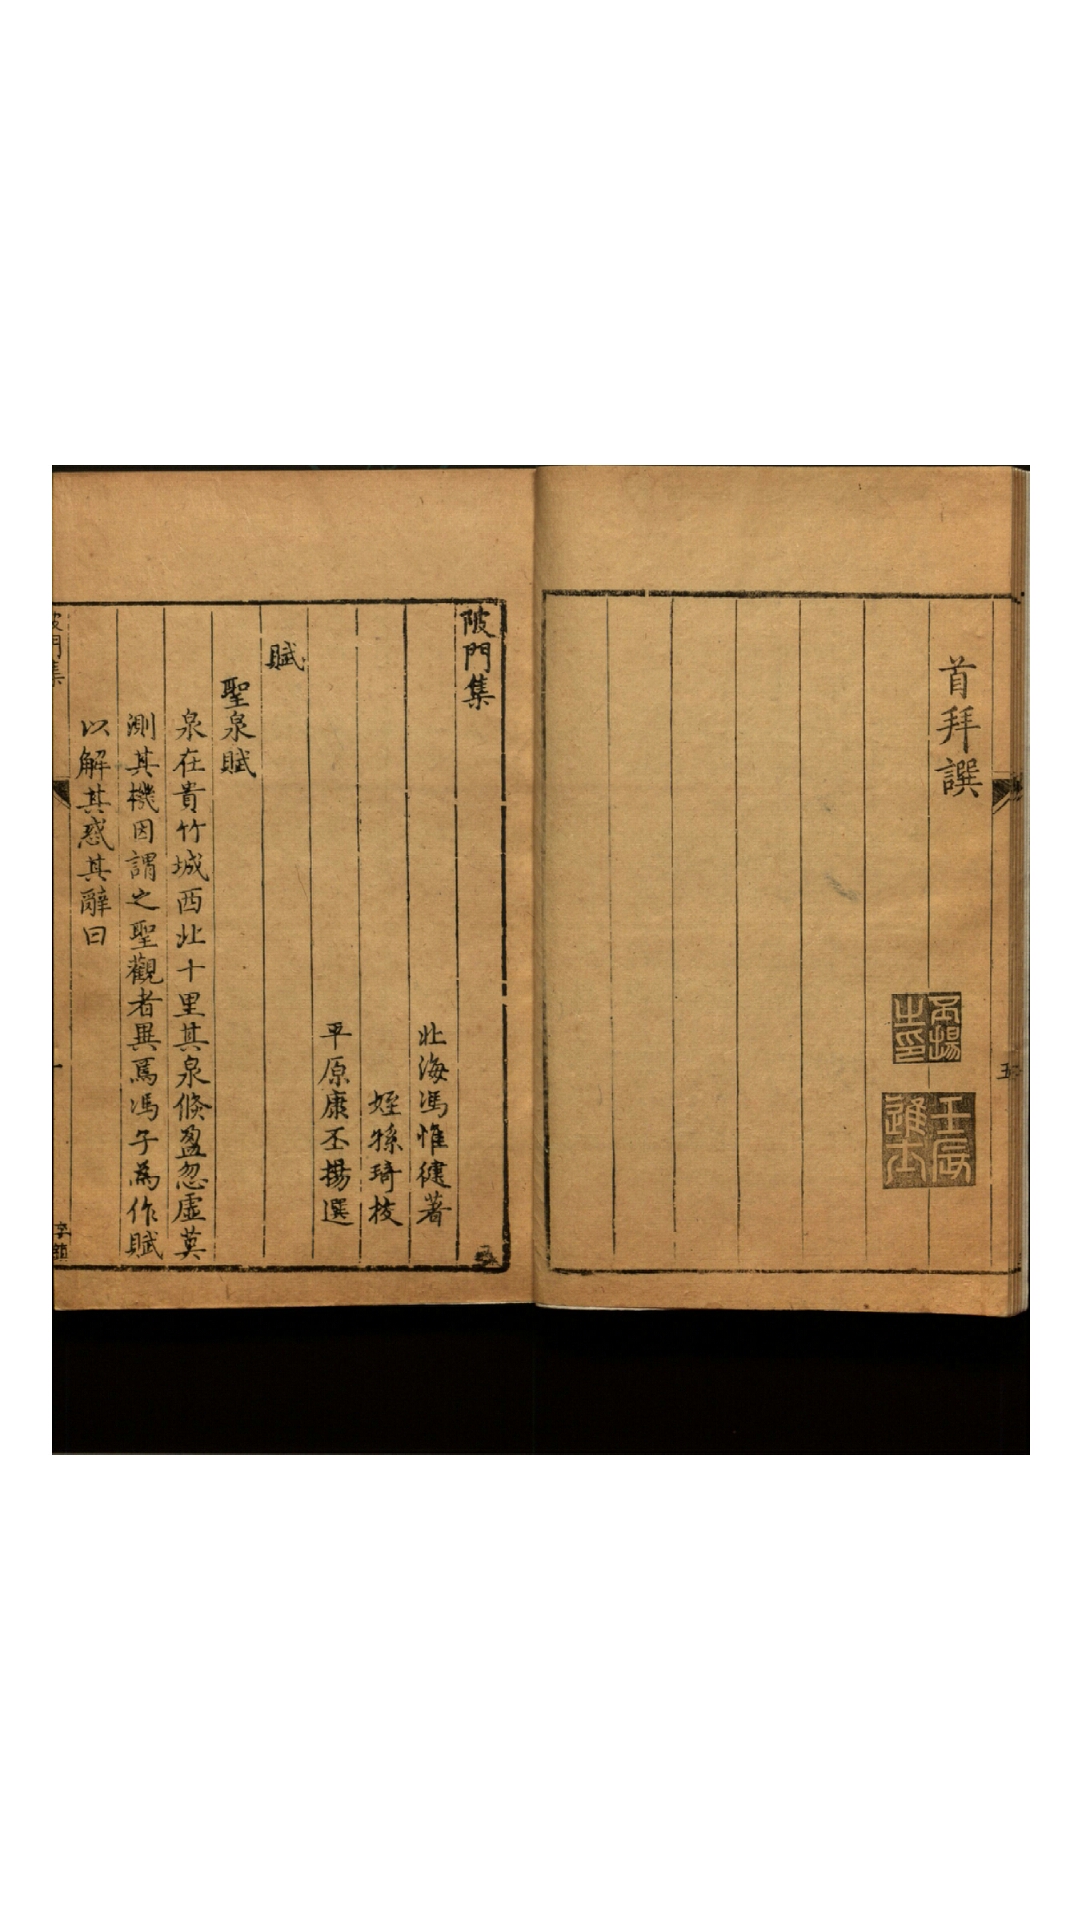 首拜譔
丕揚之印
壬辰進士
五
陂門集
北海馮惟健著
姪孫琦校
平原康丕揚選
賦
聖泉賦
泉在貴竹城西北十里其泉倐盈忽虛莫
測其機因謂之聖觀者異焉馮子為作賦
以解其惑其辭曰
陂門集
一